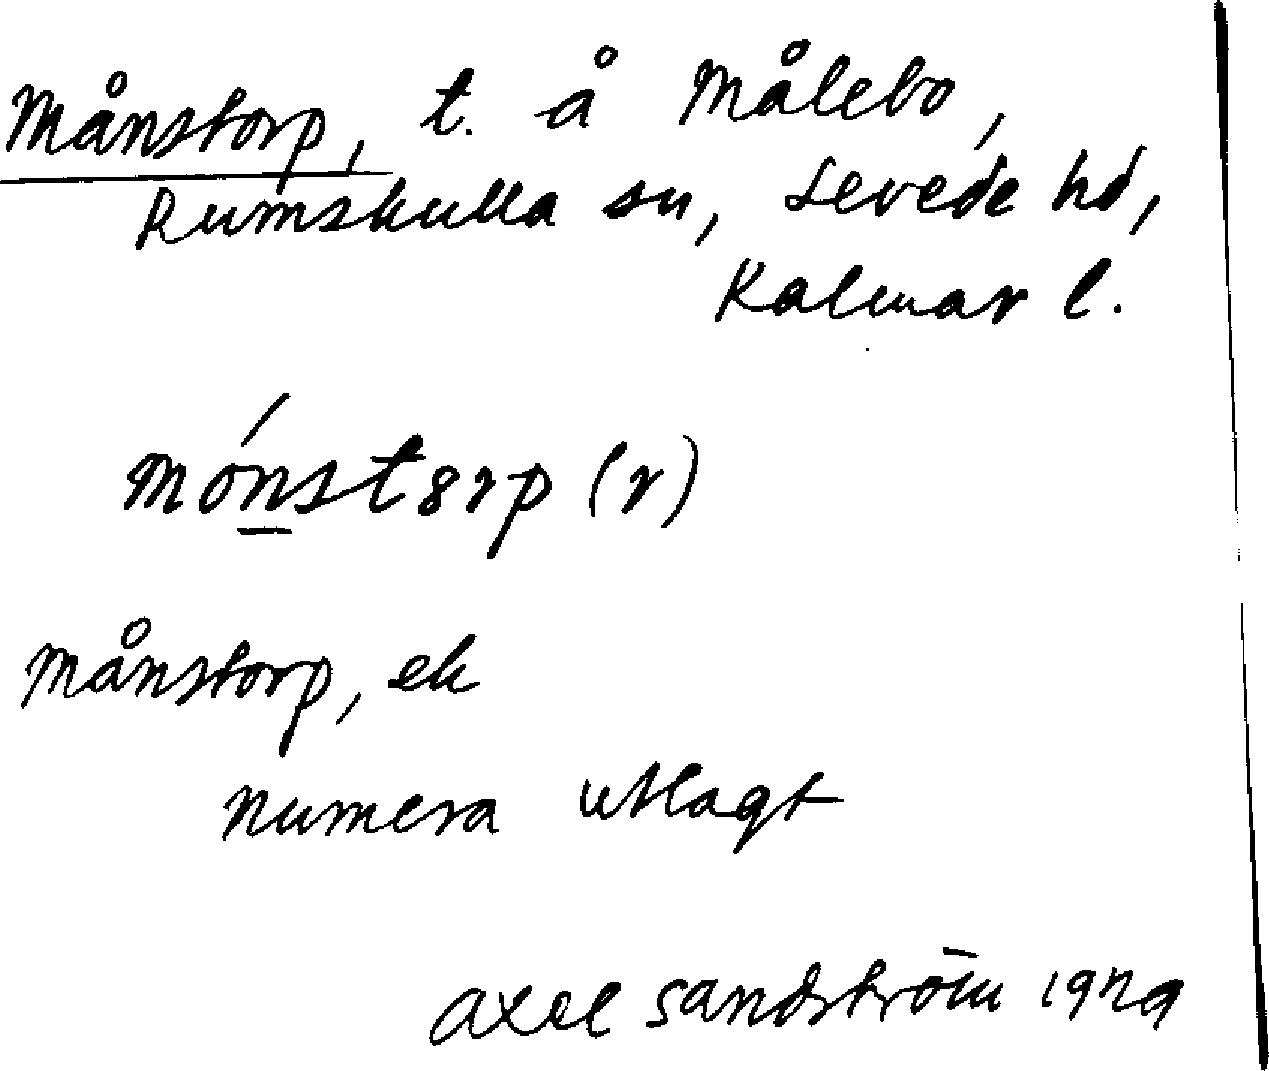 Månstorp, t. å Målebo,
Rumskulla sn, Sevede hd,
Kalmar l.
mónstorp (r)
Månstorp, ek
numera utlagt
Axel Sandström 1929